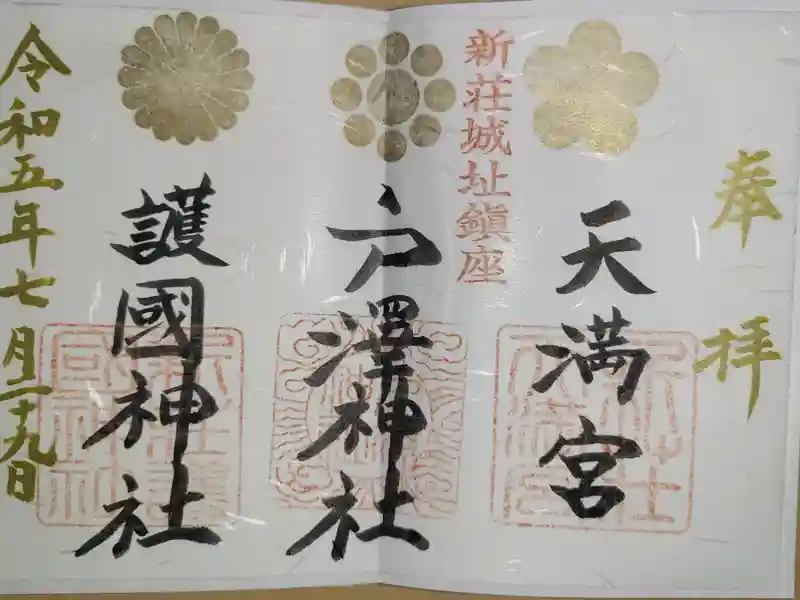 奉拝
新荘城址鎮座
天満宮
戸澤神社
護國神社
令和五年七月二十九日